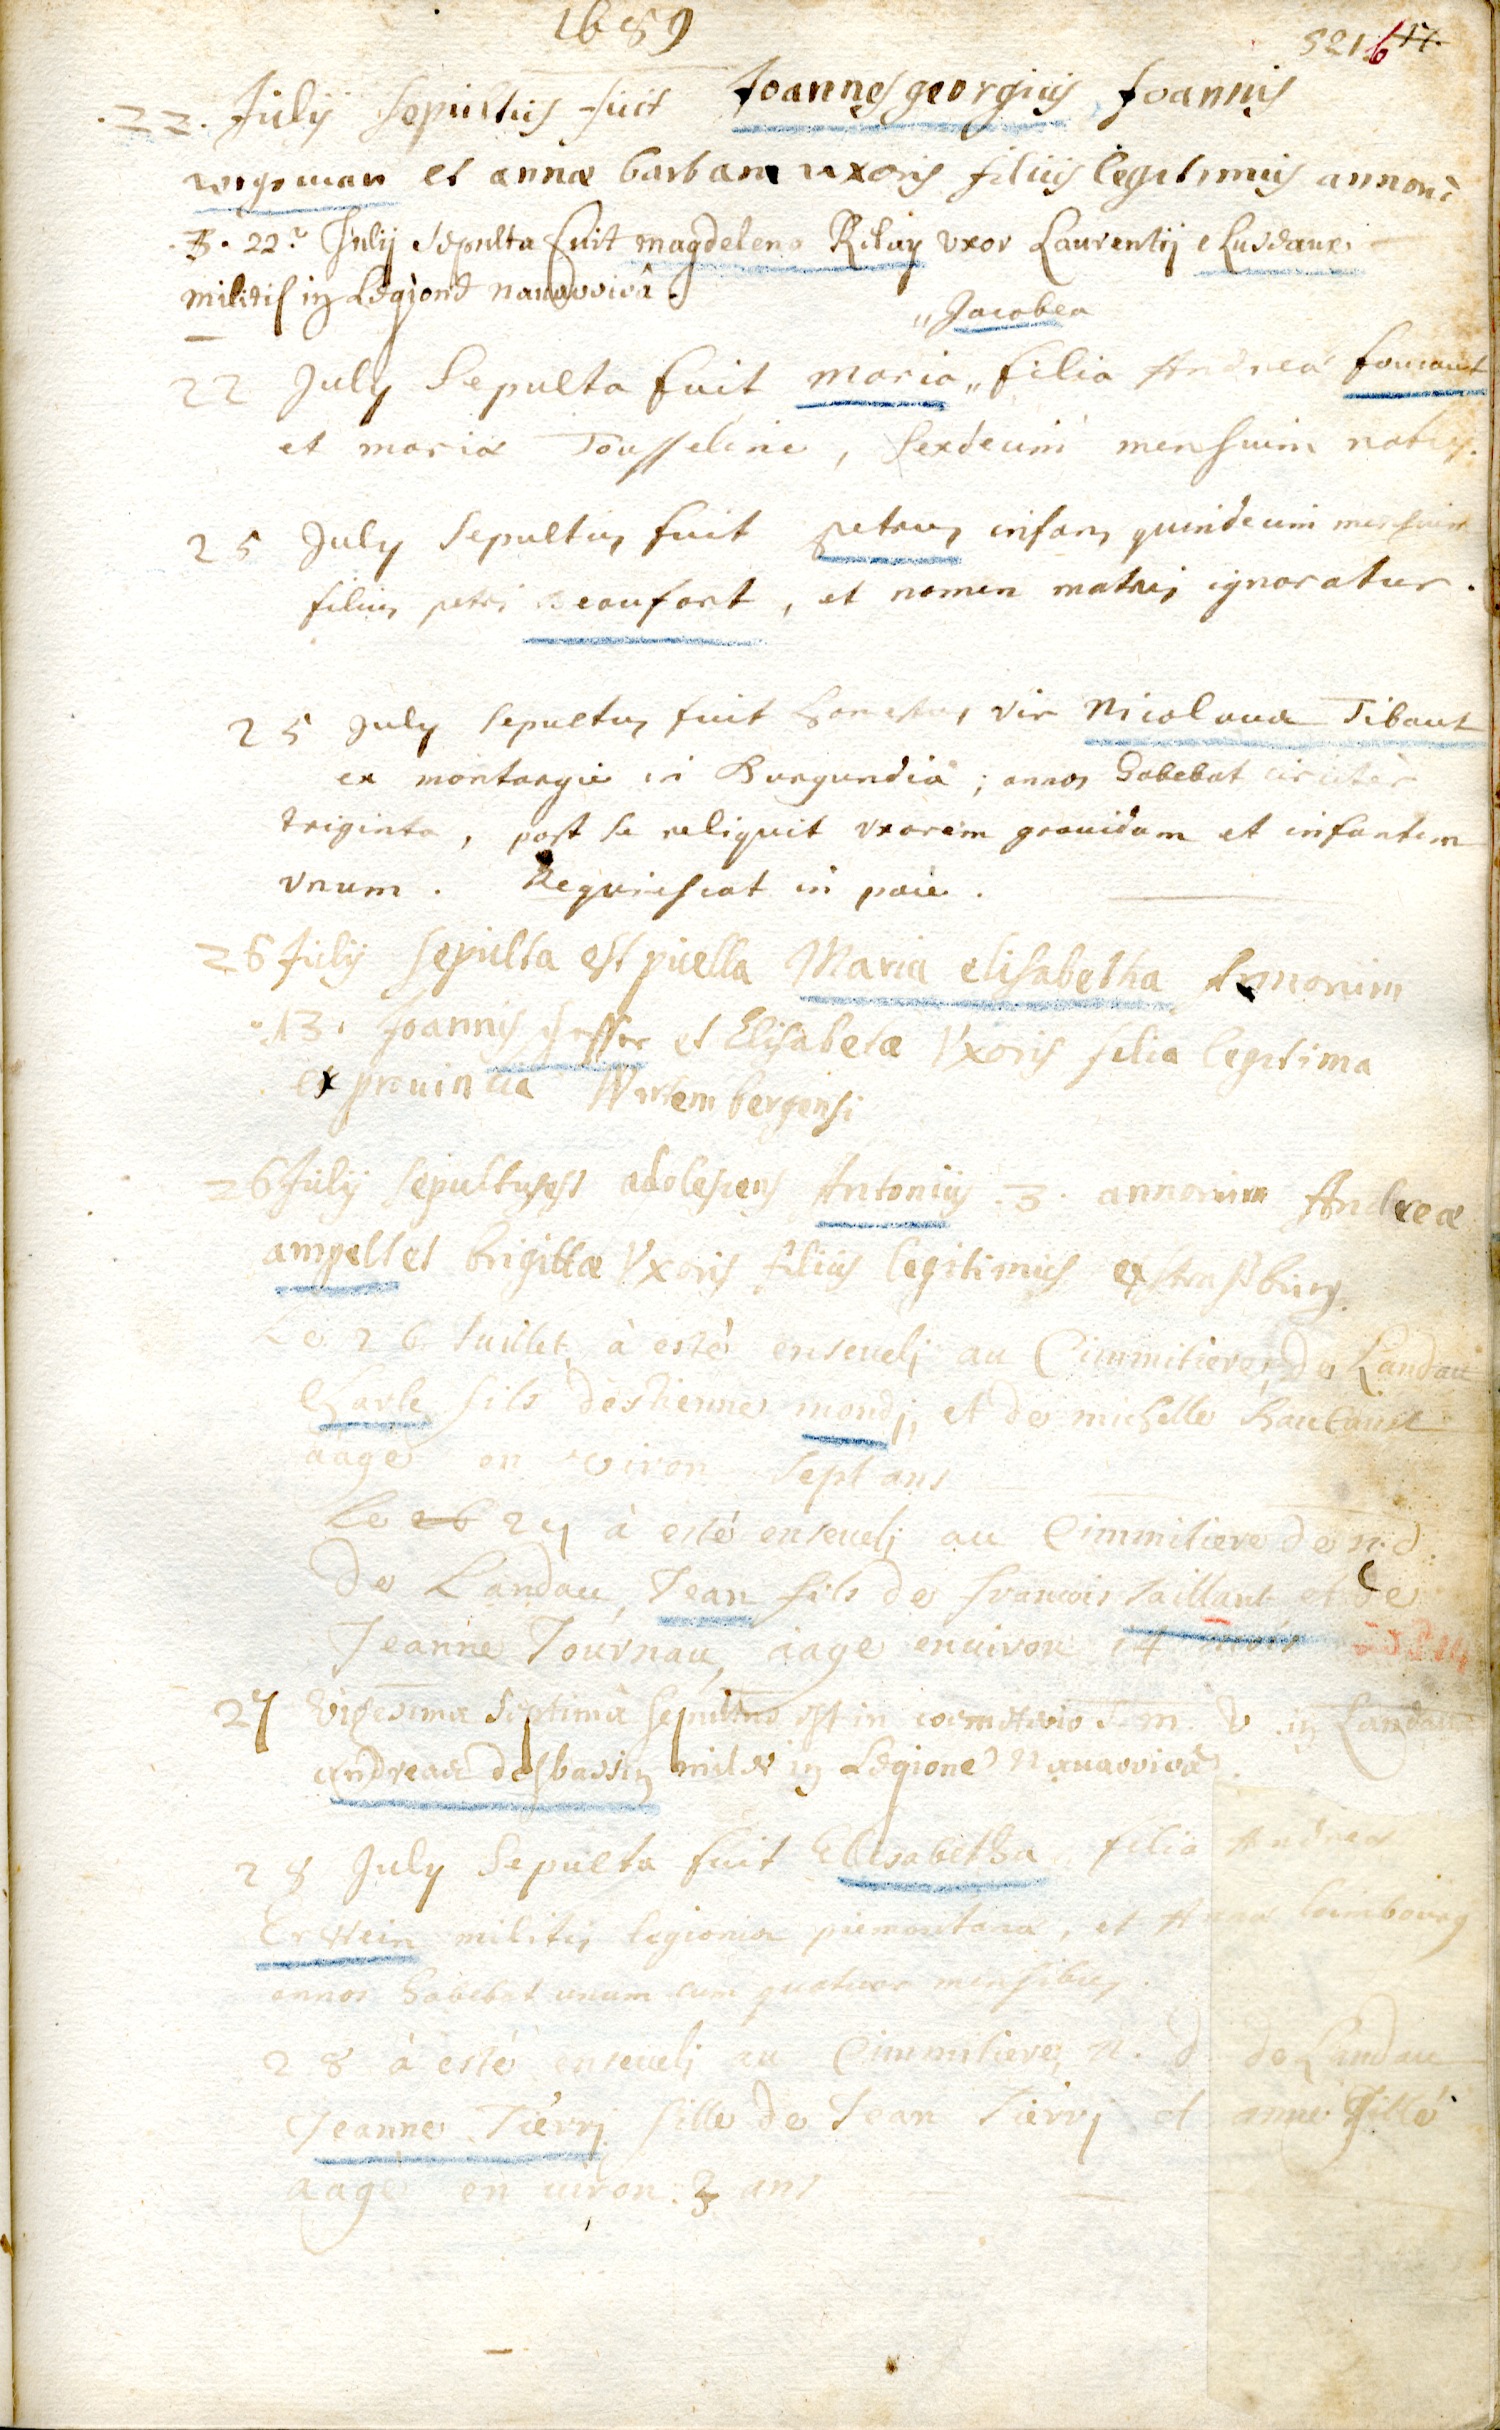 1689
521
22. Julij sepultus fuit Joannes georgius Joannis
wegeman et annæ barbaræ uxoris filius legitimus annorũ
3. 22.ª Julij sepulta fuit magdelena uxor Laurentij
militis in Legione navarricâ.
„Jacobea
22 July Sepulta fuit maria„ filia Andreæ foucaut
et mariæ Tousseline, sexdecim mensium nata.
25 July sepultus fuit petrus infans quindecim mensium
filius petri Beaufort, et nomen matris ignoratur.
25 July sepultus fuit honestus vir Nicolaus Tibaut
ex montargie in Burgundia; annos habebat circiter
triginta, post se reliquit vxorem grauidam et infantem
vnum. Requiescat in pace.
26 Julij sepulta est puella Maria elisabetha Annorum
.13. Joannis et Elisabetæ Vxoris filia legitima
ex prouincia Wirtembergensi
26 Julij sepultus est adolescens Antonius .3. annorum Andreæ
ampell et brigittæ Vxoris filius legitimus ex strasburg.
Le 26 Juillet à esté enseuelj au Cimmitiere de Landau
Charle fils destienne mondj, et de michelle
aagé en viron sept ans
Le 26 27 à esté enseuelj au Cimmitiere de n. d.
de Landau, Jean fils de francois Taillant et de
Jeanne Tournau, aagé enuiron 14 mois
27 Vigesima septimâ sepultus est in coemeterio B. m. V. in Landau
andreas desbassin miles in Legione Nauarricâ.
28 July Sepulta fuit Elisabetha filia Andreæ
Erstein militis legionis piemontanæ, et Annæ Limbourg
annos habebat unum cum quatuor mensibus.
28 à esté enseuelj au Cimmitiere n. d. de Landau
Jeanne Tierrj fille de Jean Tierrj et anne Gillé
aagé en uiron 3 ans